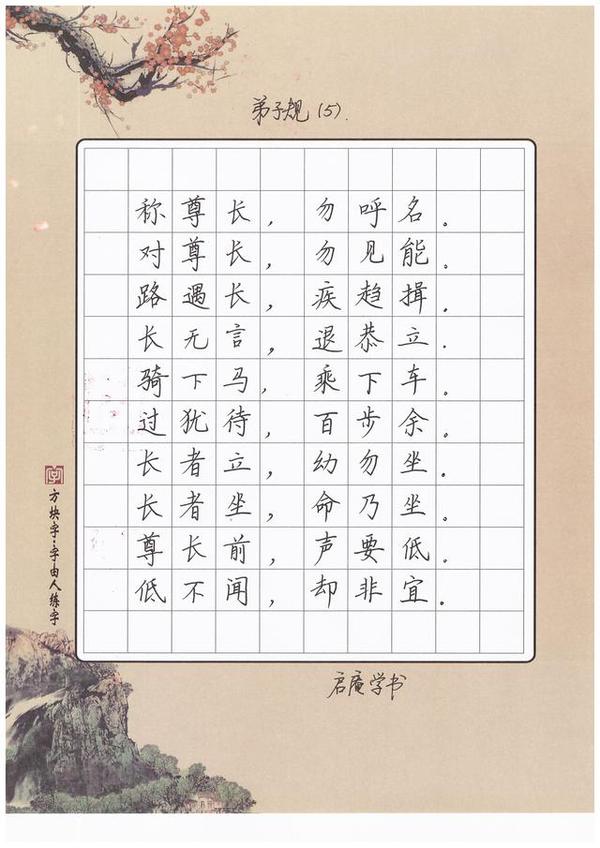 弟子规(5).
称尊长，勿呼名。
对尊长，勿见能。
路遇长，疾趋揖．
长无言，退恭立．
骑下马，乘下车．
过犹待，百步余．
长者立，幼勿坐．
长者坐，命乃坐．
尊长前，声要低．
低不闻，却非宜．
字
方块字·字由人练字
启庵学书